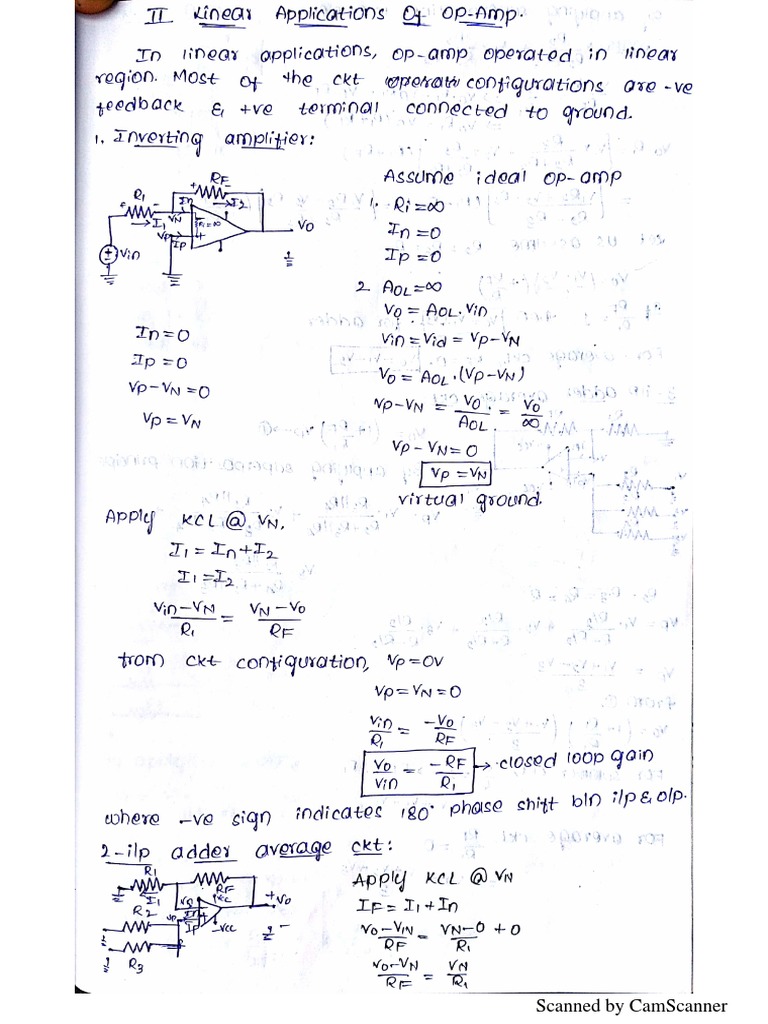 II Linear Applications Of OP-Amp.
In linear applications, op-amp operated in linear
region. Most of the ckt configurations are -ve
feedback & +ve terminal connected to ground.
1. Inverting amplifier:
Assume ideal op-amp
1. Ri=∞
In=0
Ip=0
2 AOL=∞
V0 = AOL.Vin
Vin = Vid = VP-VN
V0 = AOL.(VP-VN)
VP-VN = V0/AOL = V0/∞
VP-VN=0
VP=VN
virtual ground.
R1
RF
I1
I2
In
VN
VP
Ip
Ri=∞
V0
Vin
In=0
Ip=0
VP-VN=0
VP=VN
Apply KCL @ VN,
I1 = In+I2
I1=I2
Vin-VN/R1 = VN-V0/RF
from ckt configuration, VP=0V
VP=VN=0
Vin/R1 = -V0/RF
V0/Vin = -RF/R1 → closed loop gain
where -ve sign indicates 180° phase shift b/n i/p & o/p.
2-i/p adder average ckt:
R1
I1
RF
R2
R3
VP
Ip
-VCC
+V0
Apply KCL @ VN
IF = I1+In
V0-VIN/RF = VN-0/R1 + 0
V0-VN/RF = VN/R1
Scanned by CamScanner